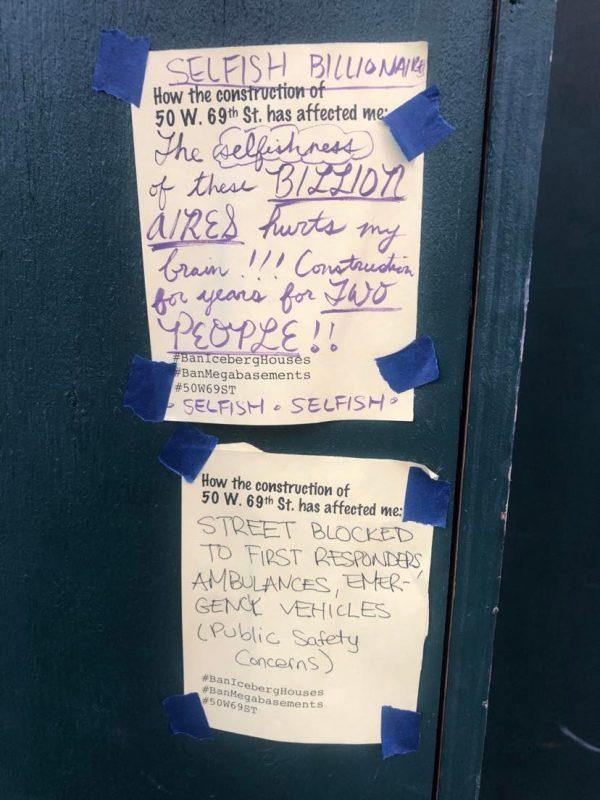 SELFISH BILLIONAIRE
How the construction of
50 W. 69th St. has affected me:
The selfishness
of these BILLION
AIRES hurts my
brain!!! Construction
for years for TWO
PEOPLE!!
#BanIcebergHouses
#BanMegabasements
#50W69ST
• SELFISH • SELFISH •
How the construction of
50 W. 69th St. has affected me:
STREET BLOCKED
TO FIRST RESPONDERS,
AMBULANCES, EMER-
GENCY VEHICLES
(Public Safety
Concerns)
#BanIcebergHouses
#BanMegabasements
#50W69ST